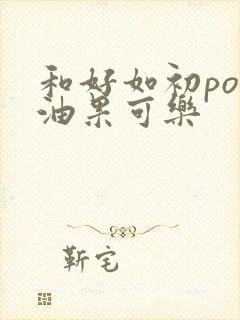 和好如初po
油果可樂
靳宅